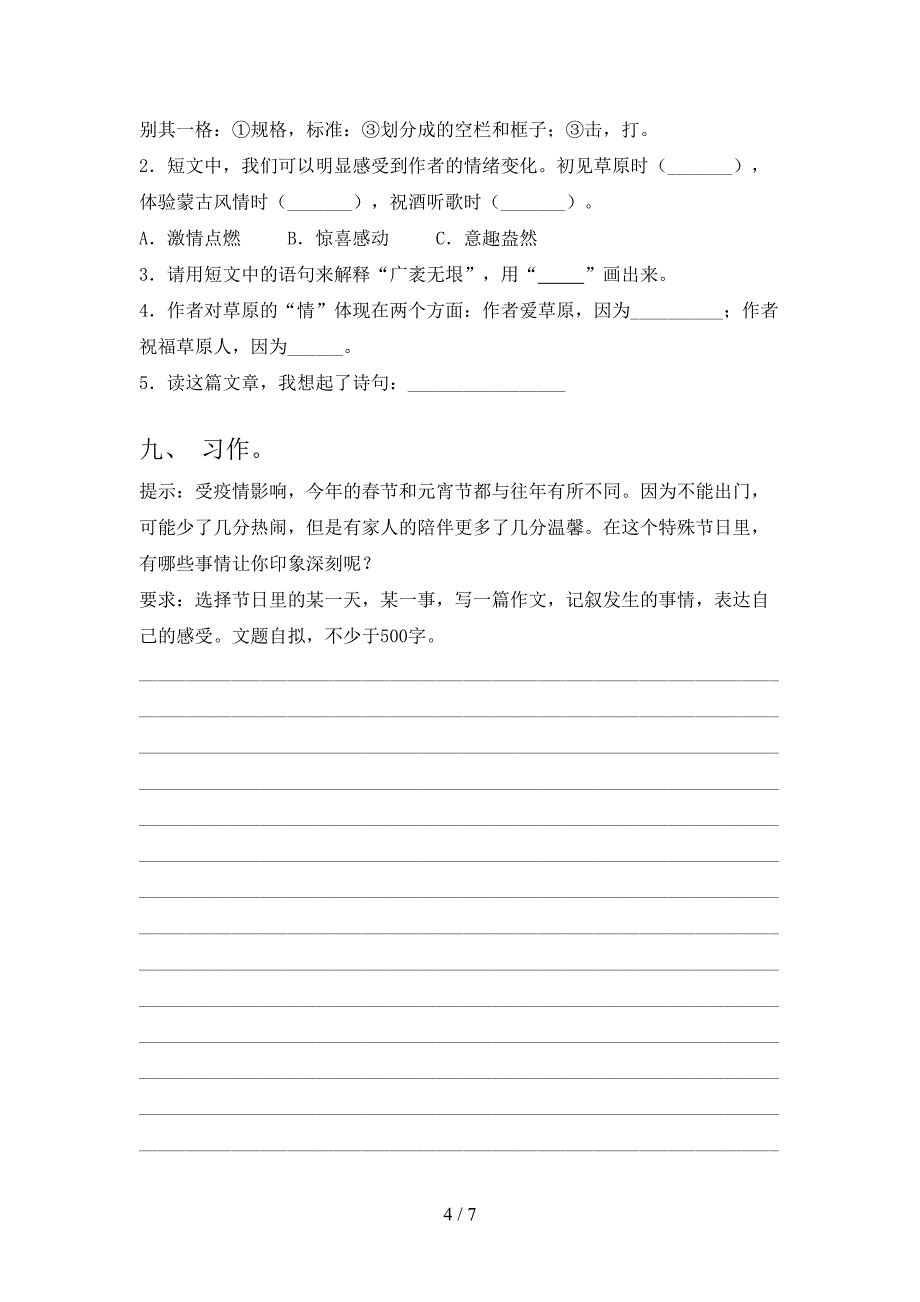 别其一格：①规格，标准：③划分成的空栏和框子；③击，打。
2．短文中，我们可以明显感受到作者的情绪变化。初见草原时（_______），
体验蒙古风情时（_______），祝酒听歌时（_______）。
A．激情点燃 B．惊喜感动 C．意趣盎然
3．请用短文中的语句来解释“广袤无垠”，用“_____”画出来。
4．作者对草原的“情”体现在两个方面：作者爱草原，因为__________；作者
祝福草原人，因为______。
5．读这篇文章，我想起了诗句：_________________
九、 习作。
提示：受疫情影响，今年的春节和元宵节都与往年有所不同。因为不能出门，
可能少了几分热闹，但是有家人的陪伴更多了几分温馨。在这个特殊节日里，
有哪些事情让你印象深刻呢？
要求：选择节日里的某一天，某一事，写一篇作文，记叙发生的事情，表达自
己的感受。文题自拟，不少于500字。
4 / 7